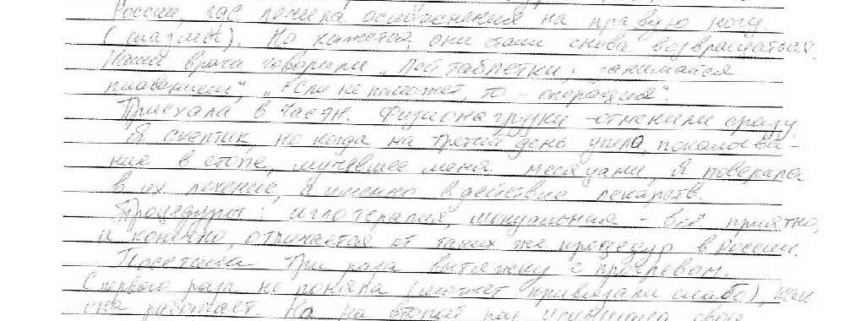 России, где лечила осложнения на правую ногу
(спазмы). Но кажется, они стали снова возвращаться.
Наши врачи говорили „Пей таблетки, занимайся
плаванием", „Если не поможет, то - операция".
Приехала в Чаян. Физионагрузки отменили сразу.
Я скептик, но когда на третий день ушло покалыва-
ние в стопе, мучевшее меня месяцами, я поверила
в их лечение, а именно в действие лекарств.
Процедуры: иглотерапия, - всё приятно,
и конечно, отличается от таких же процедур в России.
Посетила три раза вытяжку с прогревом.
С первого раза не поняла (может привязали слабо), как
она работает. Но на второй раз услышала свою